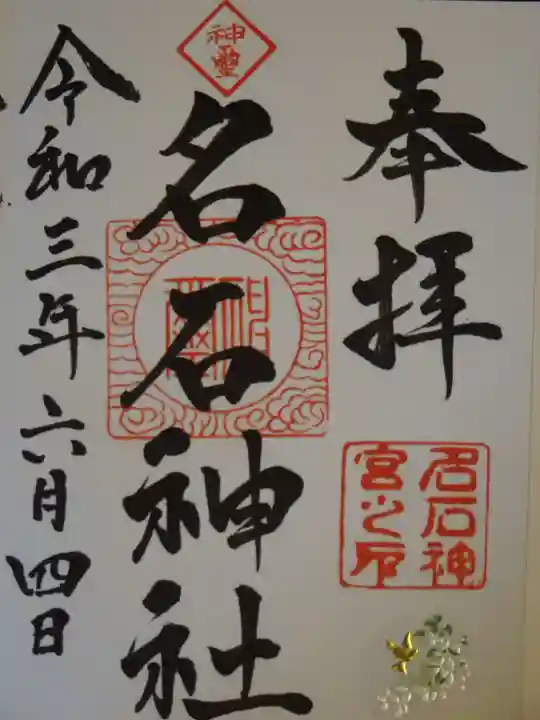 奉拝
名石神
宮之印
神霊
名石神社
令和三年六月四日